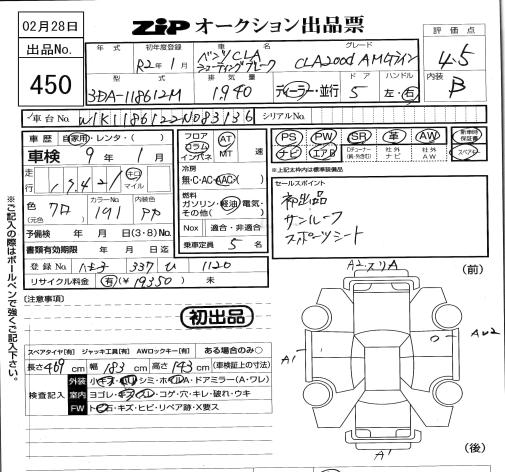 02月28日
ZIP オークション出品票
出品No.
450
年式
初年度登録
R2年 1月
車名
ベンツCLA
シューティングブレーク
グレード
CLA200d AMGライン
評価点
4.5
内装
B
型式
3DA-118612M
排気量
1,940
ディーラー・並行
ドア
5
ハンドル
左・右
車台No.
W1K1186122N083136
シリアルNo.
車歴 自家用・レンタ・( )
車検 9年 1月
走行
キロ
マイル
色
(元色)
クロ
カラーNo.
191
内装色
予備検 年 月 日(3・8)No.
書類有効期限 年 月 日迄
登録No. 八王子 337 ひ 1120
リサイクル料金 有(¥19350) 未
フロア
コラム
インパネ
AT
MT
速
冷房
無・C・AC・AAC( )
燃料
ガソリン・軽油・電気・その他( )
Nox 適合・非適合
乗車定員 5 名
PS
PW
SR
革
AW
新車時保証書
ナビ
エアB
社外ナビ
社外AW
スペアキー
※上記太枠内は標準装備品
セールスポイント
初出品
サンルーフ
スポーツシート
※ご記入の際はボールペンで強くご記入下さい。
[注意事項]
初出品
スペアタイヤ[有] ジャッキ工具[有] AWロックキー[有] ある場合のみ○
長さ469cm 幅183cm 高さ143cm (車検証上の寸法)
検査記入
外装 小キズ・凹・シミ・ホイルA・ドアミラー(A・ワレ)
室内 ヨゴレ・キズ・スレ・コゲ・穴・キレ・破れ・ウキ
FW ト石・キズ・ヒビ・リペア跡・X要ス
A2.スリA
(前)
A1
AW2
A1
(後)